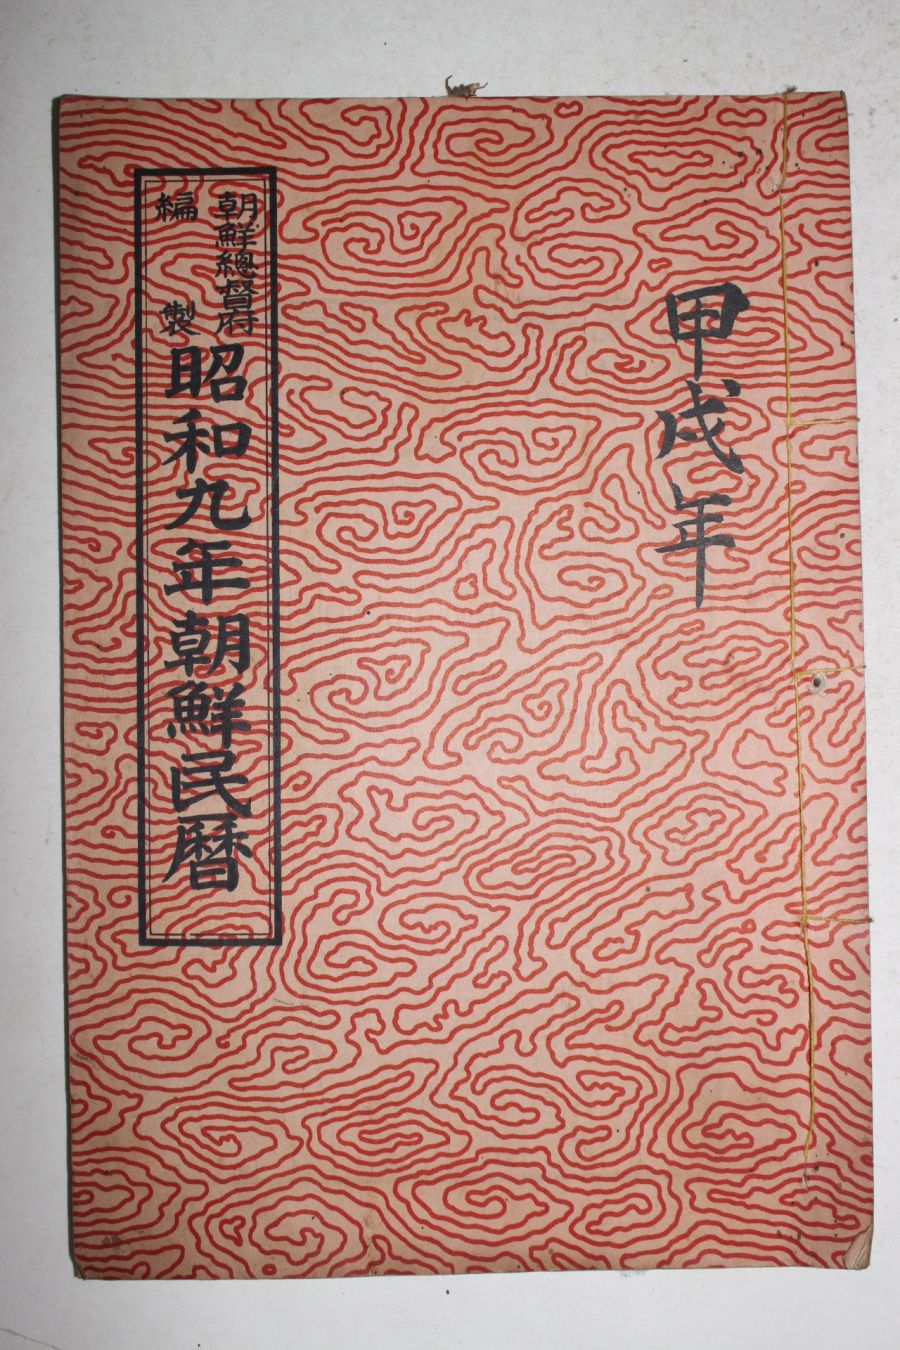 甲戌年
朝鮮總督府
編製
昭和九年朝鮮民暦